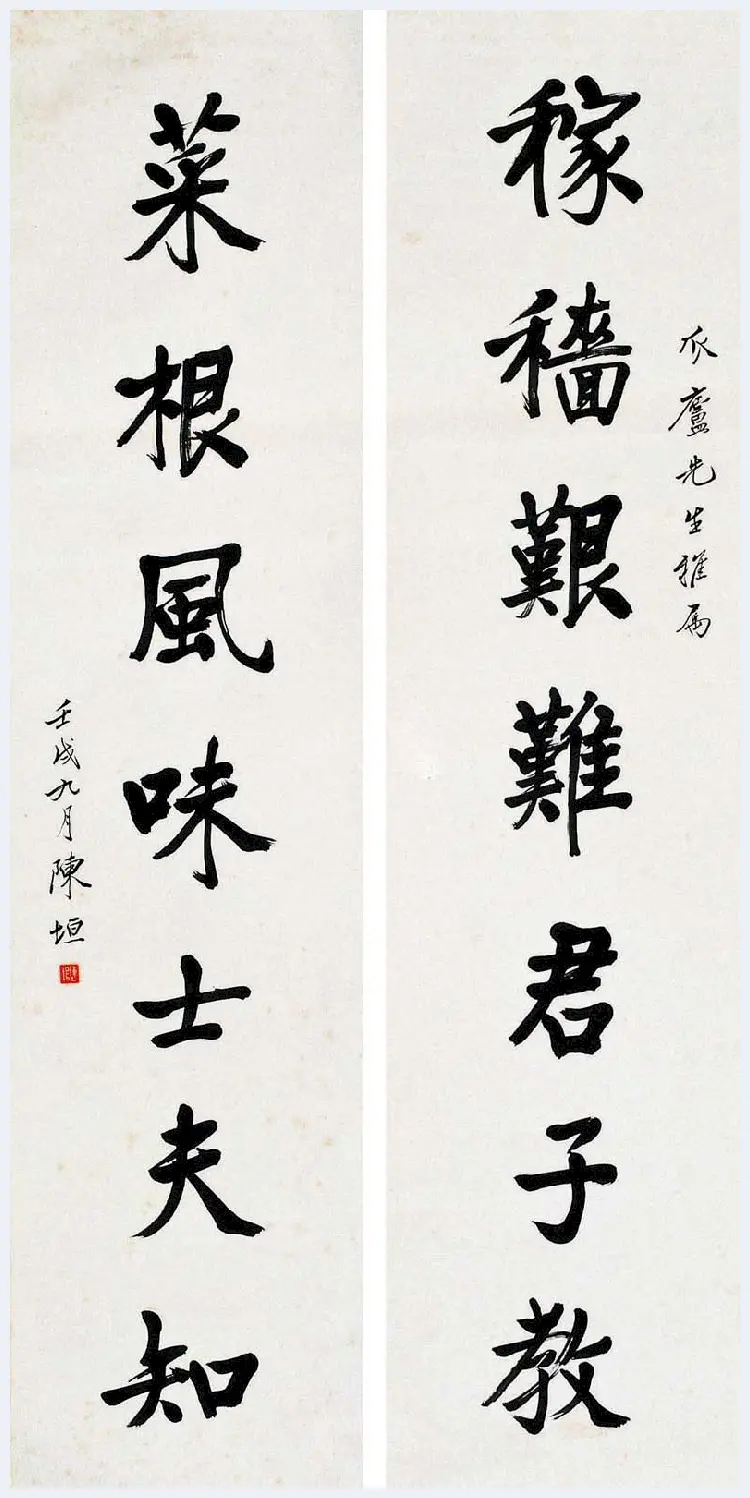 稼穡艱難君子教
瓜廬先生雅屬
菜根風味士夫知
壬戌九月陳垣